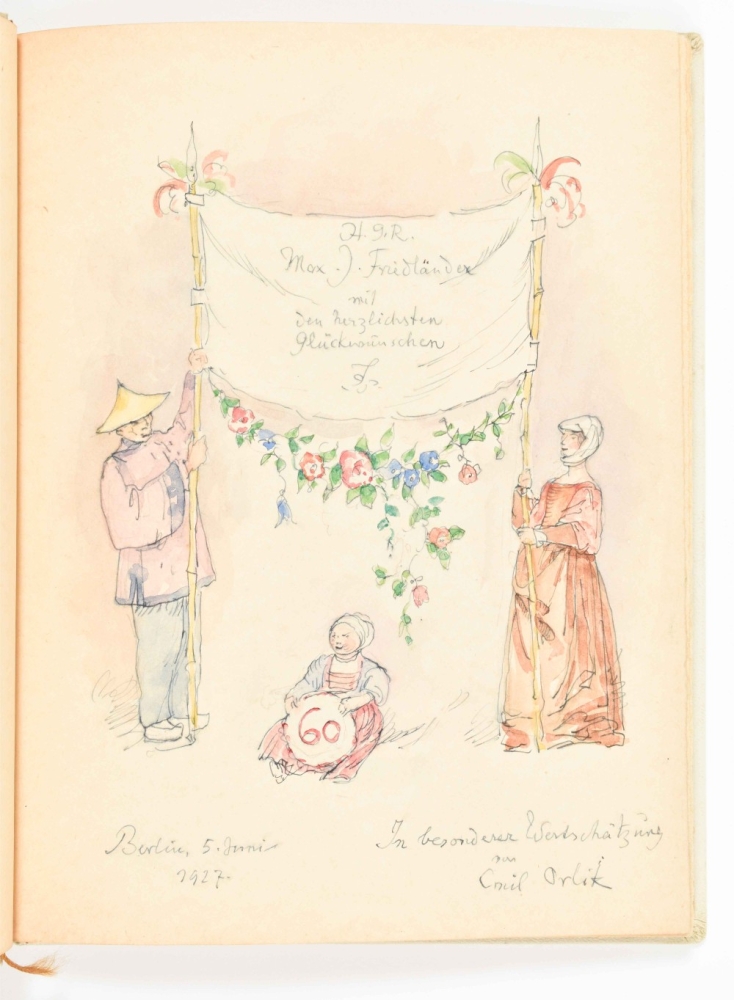 H. G. R.
Max J. Friedländer
mit
den herzlichsten
Glückwünschen
60
Berlin, 5. Juni
1927.
In besonderer Wertschätzung
von
Emil Orlik